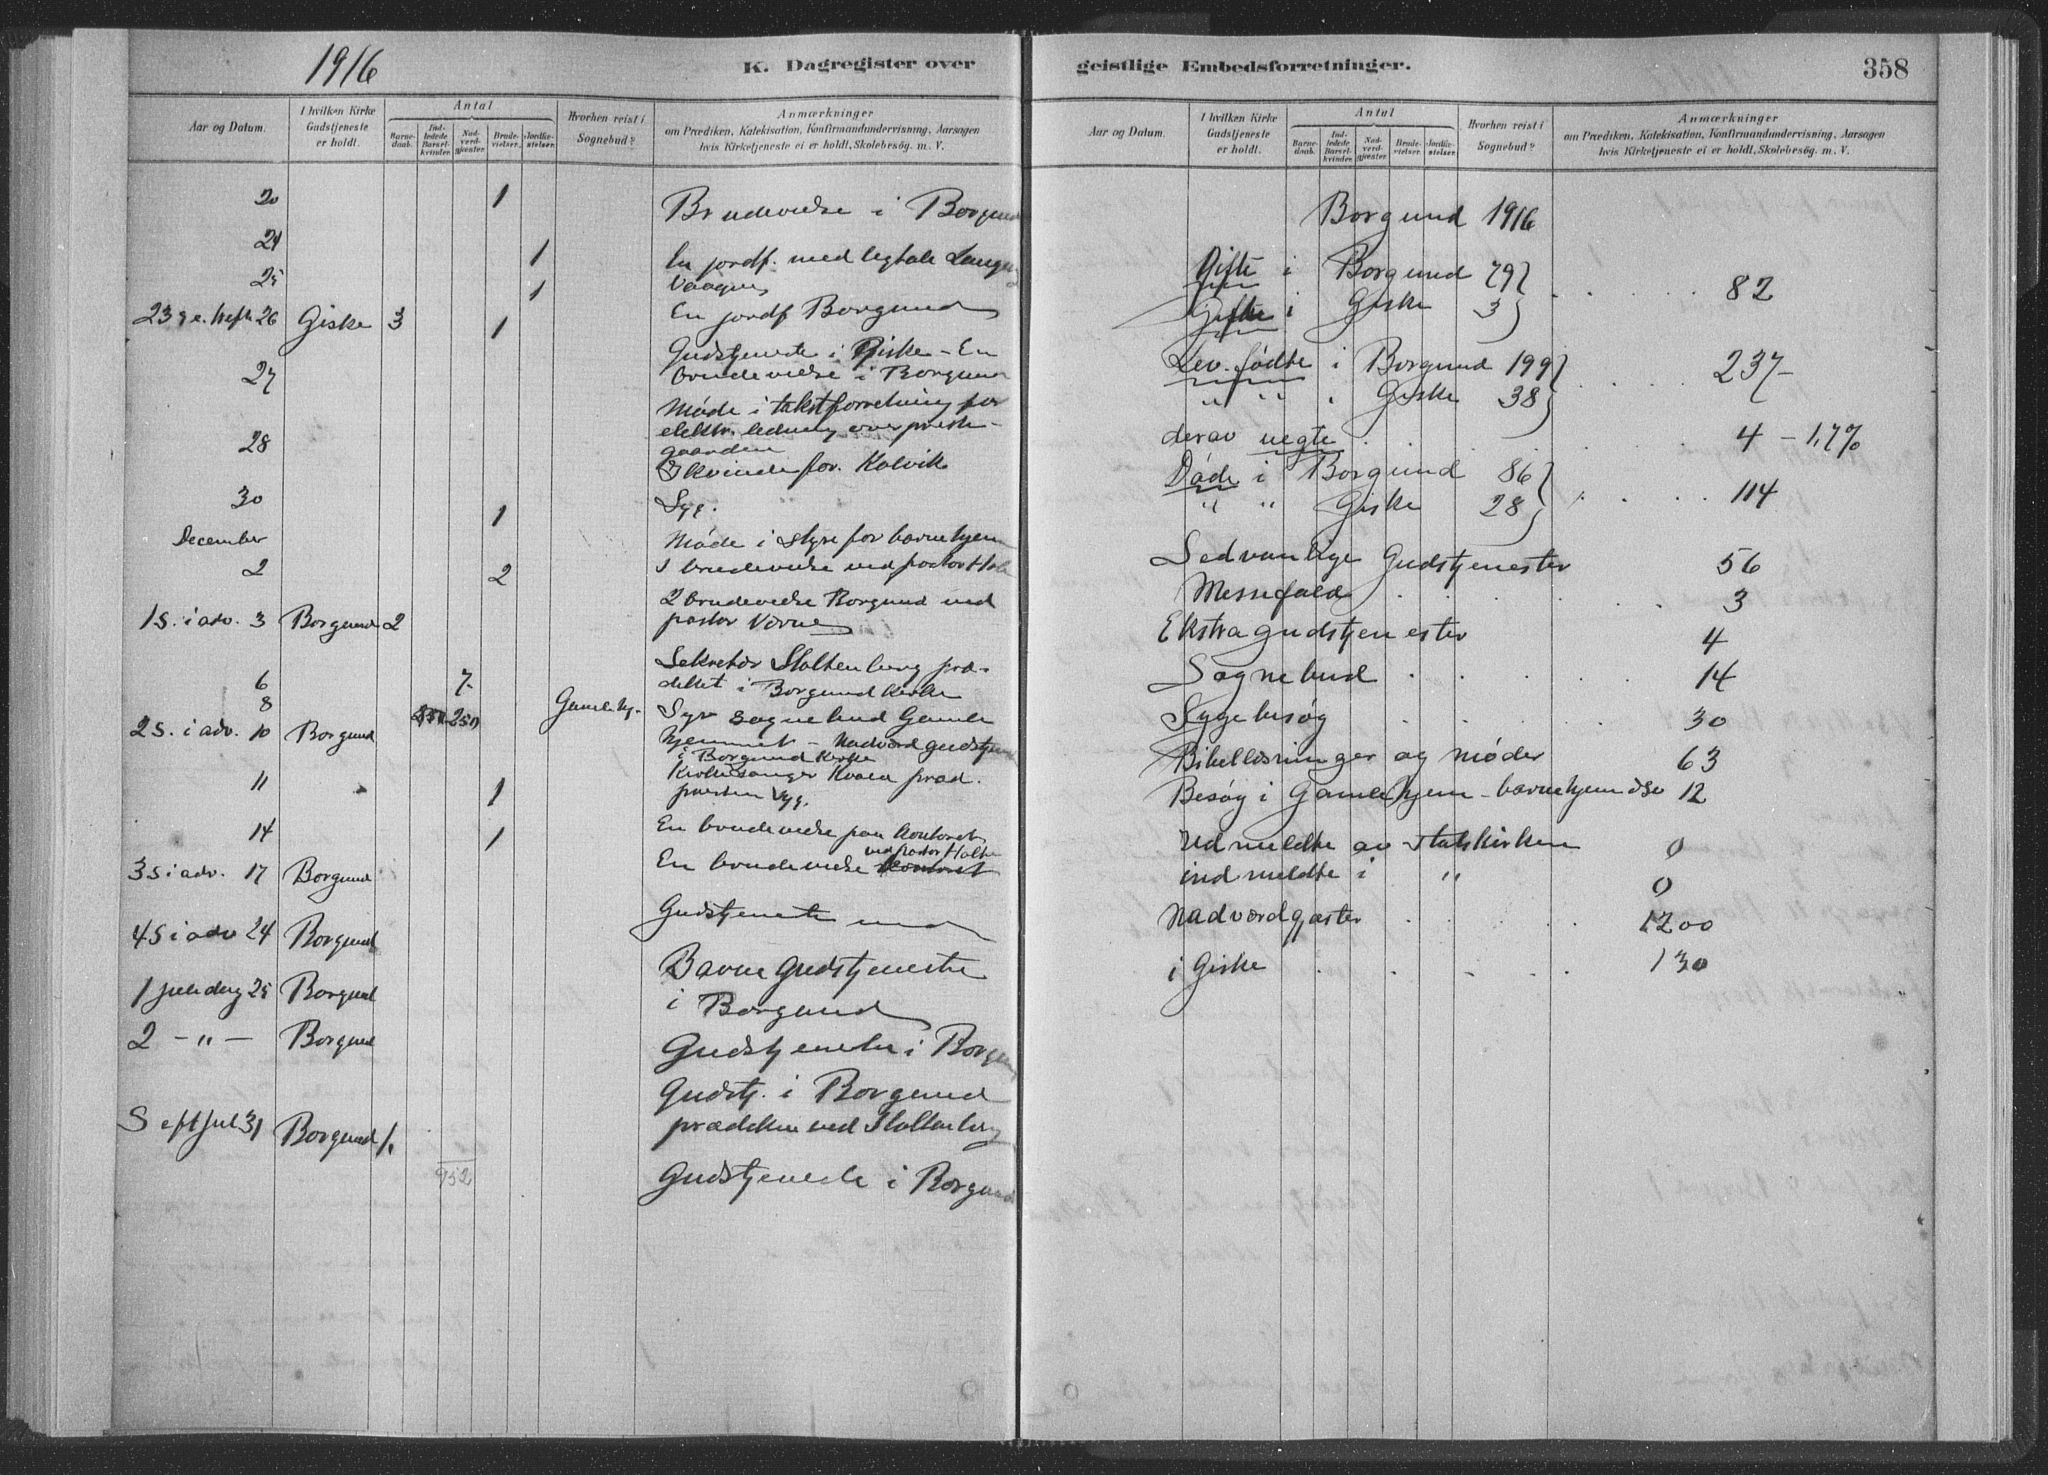 1916
K. Dagregister over
Aar og Datum.
I hvilken Kirke Gudstjeneste er holdt.
Antal
Barnedaab.
Indledede Barselkvinder.
Nadverdgjester.
Brudevielser.
Jordfæstelser.
Hvorhen reist i Sognebud?
Anmærkninger
om Prædiken, Katekisation, Konfirmandundervisning, Aarsagen
hvis Kirketjeneste ei er holdt, Skolebesøg. m. V.
20 1 Brudevielse i Borgund
24 1 En jordf. med ligtale Langevaagen
25 1 En jordf Borgund
26 Giske 3 1 Gudstjeneste i Giske - En
brudevielse i Borgund
27 Møde i takstforretning for
elektr. ledning over preste-
gaarden
28 I kvindefor. Kalvik
30 1 Syg.
December
Møde i styre for barnehjem
2 2 1 brudevielse ved pastor Holte
2 brudevielse Borgund ved
pastor
1 s. i adv. 3 Borgund 2
Sekretær Stoltenberg præ-
diket i Borgund kirke
6 7
8 Gamlehj. Syg sognebud Gamle
hjemmet - Nadverdgudstj
2 s. i adv. 10 Borgund 250 i Borgund kirke
Kirkesanger Kvaen præd.
presten syg.
11 1 En brudevielse paa kontoret
14 1 En brudevielse ved pastor Holte
3 s i adv. 17 Borgund
Gudstjeneste
4 s i adv 24 Borgund Barnegudstjeneste
i Borgund
1 juledag 25 Borgund Gudstjeneste i Borgund
2 - " - Borgund Gudstj. i Borgund
prædiken ved Stoltenberg
S eft jul 31 Borgund 1.
952
Gudstjeneste i Borgund
geistlige Embedsforretninger.
358
Aar og Datum.
I hvilken Kirke Gudstjeneste er holdt.
Antal
Barnedaab.
Indledede Barselkvinder.
Nadverdgjester.
Brudevielser.
Jordfæstelser.
Hvorhen reist i Sognebud?
Anmærkninger
om Prædiken, Katekisation, Konfirmandundervisning, Aarsagen
hvis Kirketjeneste ei er holdt, Skolebesøg. m. V.
Borgund 1916
Gifte i Borgund 79
Gifte i Giske 3 82
Lev. fødte i Borgund 199 237
" " i Giske 38
derav uegte 4 - 1,7%
Døde i Borgund 86
" " Giske 28 114
Sedvanlige Gudstjenester 56
Messefald 3
Ekstragudstjenester 4
Sognebud 14
Sygebesøg 30
Bibellæsninger og møder 63
Besøg i Gamlehjem - barnehjem osv 12
Udmeldte av statskirken 0
indmeldte i " 0
Nadverdgjæster 1200
i Giske 130